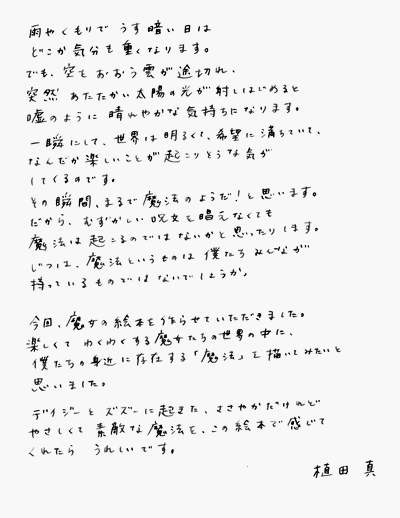 雨やくもりで うす暗い日は
どこか気分も重くなります。
でも、空をおおう雲が途切れ、
突然 あたたかい太陽の光が射しはじめると
嘘のように 晴れやかな気持ちになります。
一瞬にして、世界は明るくて、希望に満ちていて、
なんだか楽しいことが起こりそうな気が
してくるのです。
その瞬間、まるで魔法のようだ!と思います。
だから、むずかしい呪文を唱えなくても
魔法は起こるのではないかと思ったりします。
じつは、魔法というものは僕たちみんなが
持っているものではないでしょうか。
今回、魔女の絵本を作らせていただきました。
楽しくて わくわくする魔女たちの世界の中に、
僕たちの身近に存在する「魔法」を描いてみたいと
思いました。
デイジーとズズーに起きた、ささやかだけれど
やさしくて 素敵な魔法を、この絵本で感じて
くれたら うれしいです。
植田 真